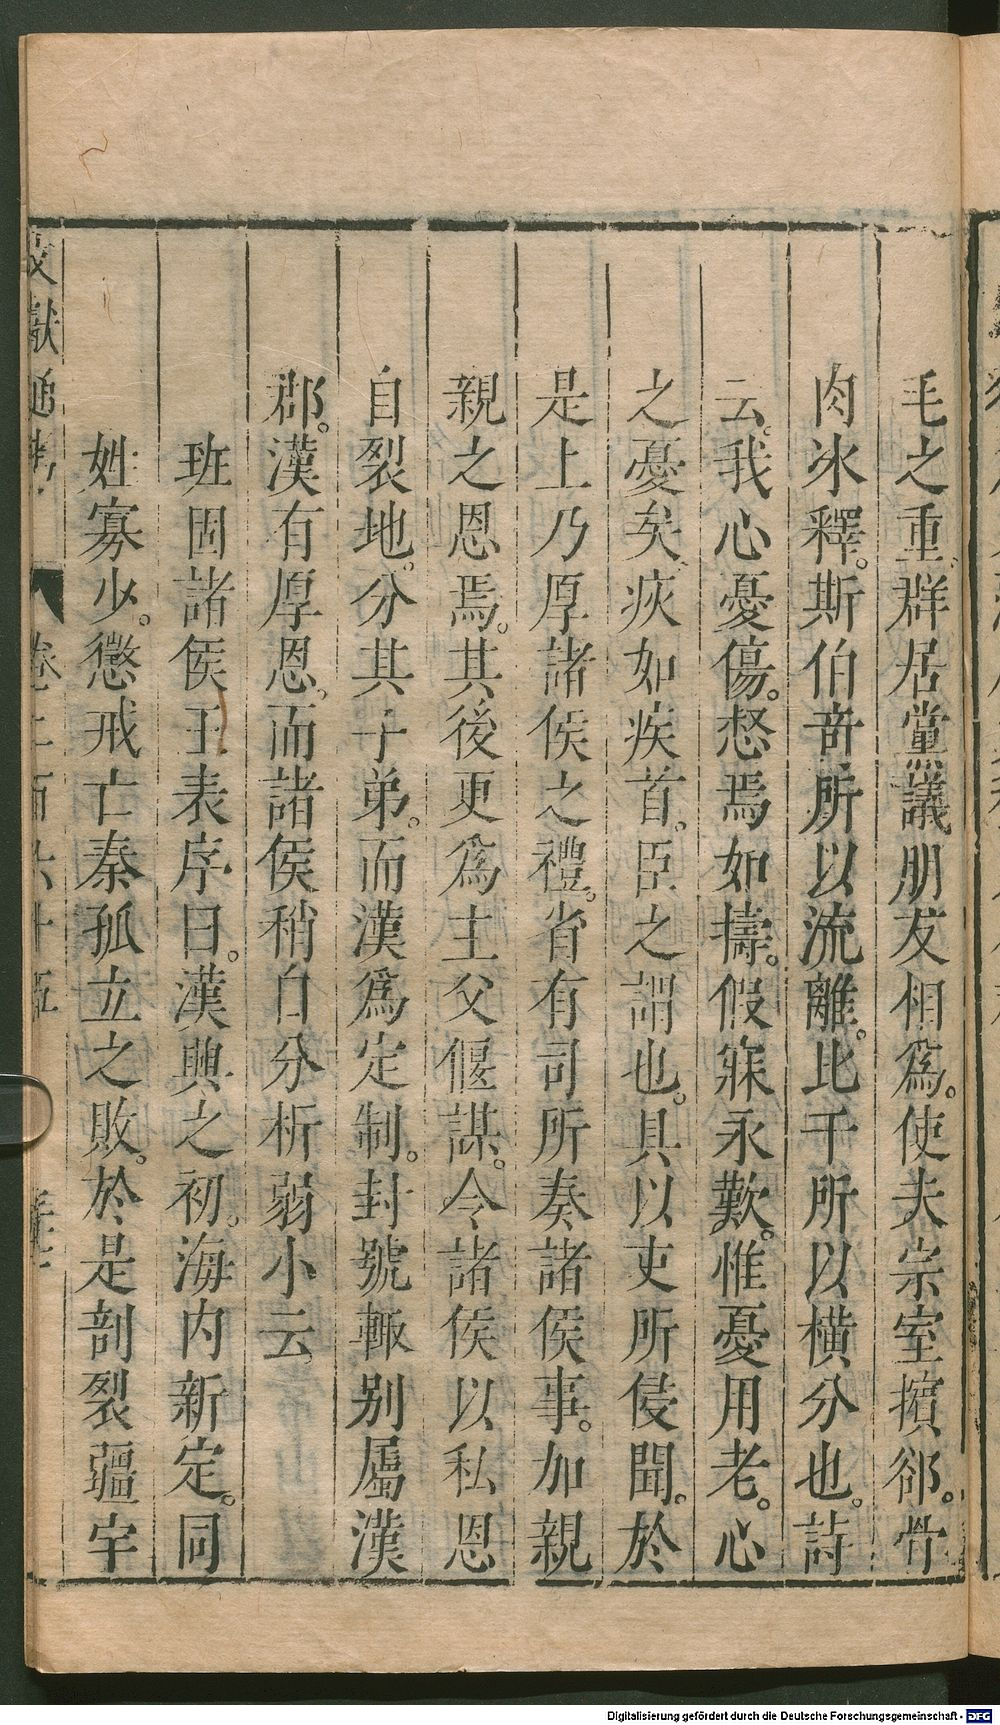 毛之重。群居黨議朋友相爲。使夫宗室擯郤。骨
肉冰釋。斯伯奇所以流離。比干所以橫分也。詩
云。我心憂傷。惄焉如擣。假寐永歎。惟憂用老。心
之憂矣。疢如疾首。臣之謂也。具以吏所侵聞。於
是上乃厚諸侯之禮。省有司所奏諸侯事。加親
親之恩焉。其後更爲主父偃謀。令諸侯以私恩
自裂地。分其子弟。而漢爲定制。封號輒别屬漢
郡。漢有厚恩。而諸侯稍自分析弱小云
班固諸侯王表序曰。漢興之初。海内新定。同
姓寡少。懲戒亡秦孤立之敗。於是剖裂疆宇
文獻通考 卷二百六十五
Digitalisierung gefördert durch die Deutsche Forschungsgemeinschaft - DFG